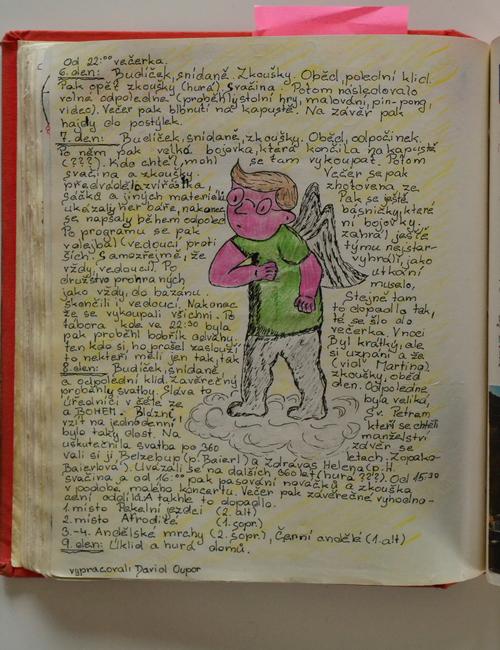 Od 22:00 večerka.
6.den: Budíček, snídaně. Zkoušky. Oběd, polední klid.
Pak opět zkoušky (hurá). Svačina. Potom následovalo
volné odpoledne (proběhly stolní hry, malování, pin-pong,
video). Večer pak blbnutí na kapustě. Na závěr pak
hajdy do postýlek.
7.den: Budíček, snídaně, zkoušky. Oběd, odpočinek.
Po něm pak velká bojovka, která končila na kapustě
(???). Kdo chtěl, mohl se tam vykoupat. Potom
svačina a zkoušky. Večer se pak
předváděla zvířátka, zhotovena ze
sáčků a jiných materiálů. Pak se ještě
ukázaly her báře, nakonec básničky, které
se napsaly během odpoled ní bojovky.
Po programu se pak zahrál ještě
volejbal (vedoucí proti týmu nejstar-
ších. Samozřejmě, že vyhráli, jako
vždy, vedoucí). Po utkání
družstvo prohraných muselo,
jako vždy, do bazénu. Stejně tam
skončili i vedoucí. Nakonec to dopadlo tak,
že se vykoupali všichni. Po té se šlo do
tábora kde ve 22:30 byla večerka. V noci
pak proběhl bobřík odvahy. Byl krátký, ale
ten kdo si ho prošel zaslouží si uznání a že
to někteří měli jen tak, tak (viď Martino).
8.den: Budíček, snídaně, zkoušky, oběd
a odpolední klid. Závěrečný den. Odpoledne
probáhly svatby. Sláva to byla veliká,
Úředníci v čele ze Sv. Petrem
a BOHEM. Blázni kteří se chtěli
vzít na jednodenní manželství
bylo taky dost. Na závěr se
uskutečnila svatba po 360 letech. Zopako-
vali si jí Belzebup (p. Baierl) a Zdrávas Helena (p. H.
Baierlová). Uvázali se na dalších 360 let (hurá ???). Od 15:30
svačina a od 16:00 pak pasování nováčků a zkouška
v podobě malého koncertu. Večer pak závěrečné vyhodno-
cení oddílů. A takhle to dopadlo.
1.místo Pekelní jezdci (2. alt)
2.místo Afrodité (1. sopr.)
3.-4. Andělské mrchy (2. sopr.), Černí andělé (1. alt)
9.den: Úklid a hurá domů.
vypracovali David Oupor